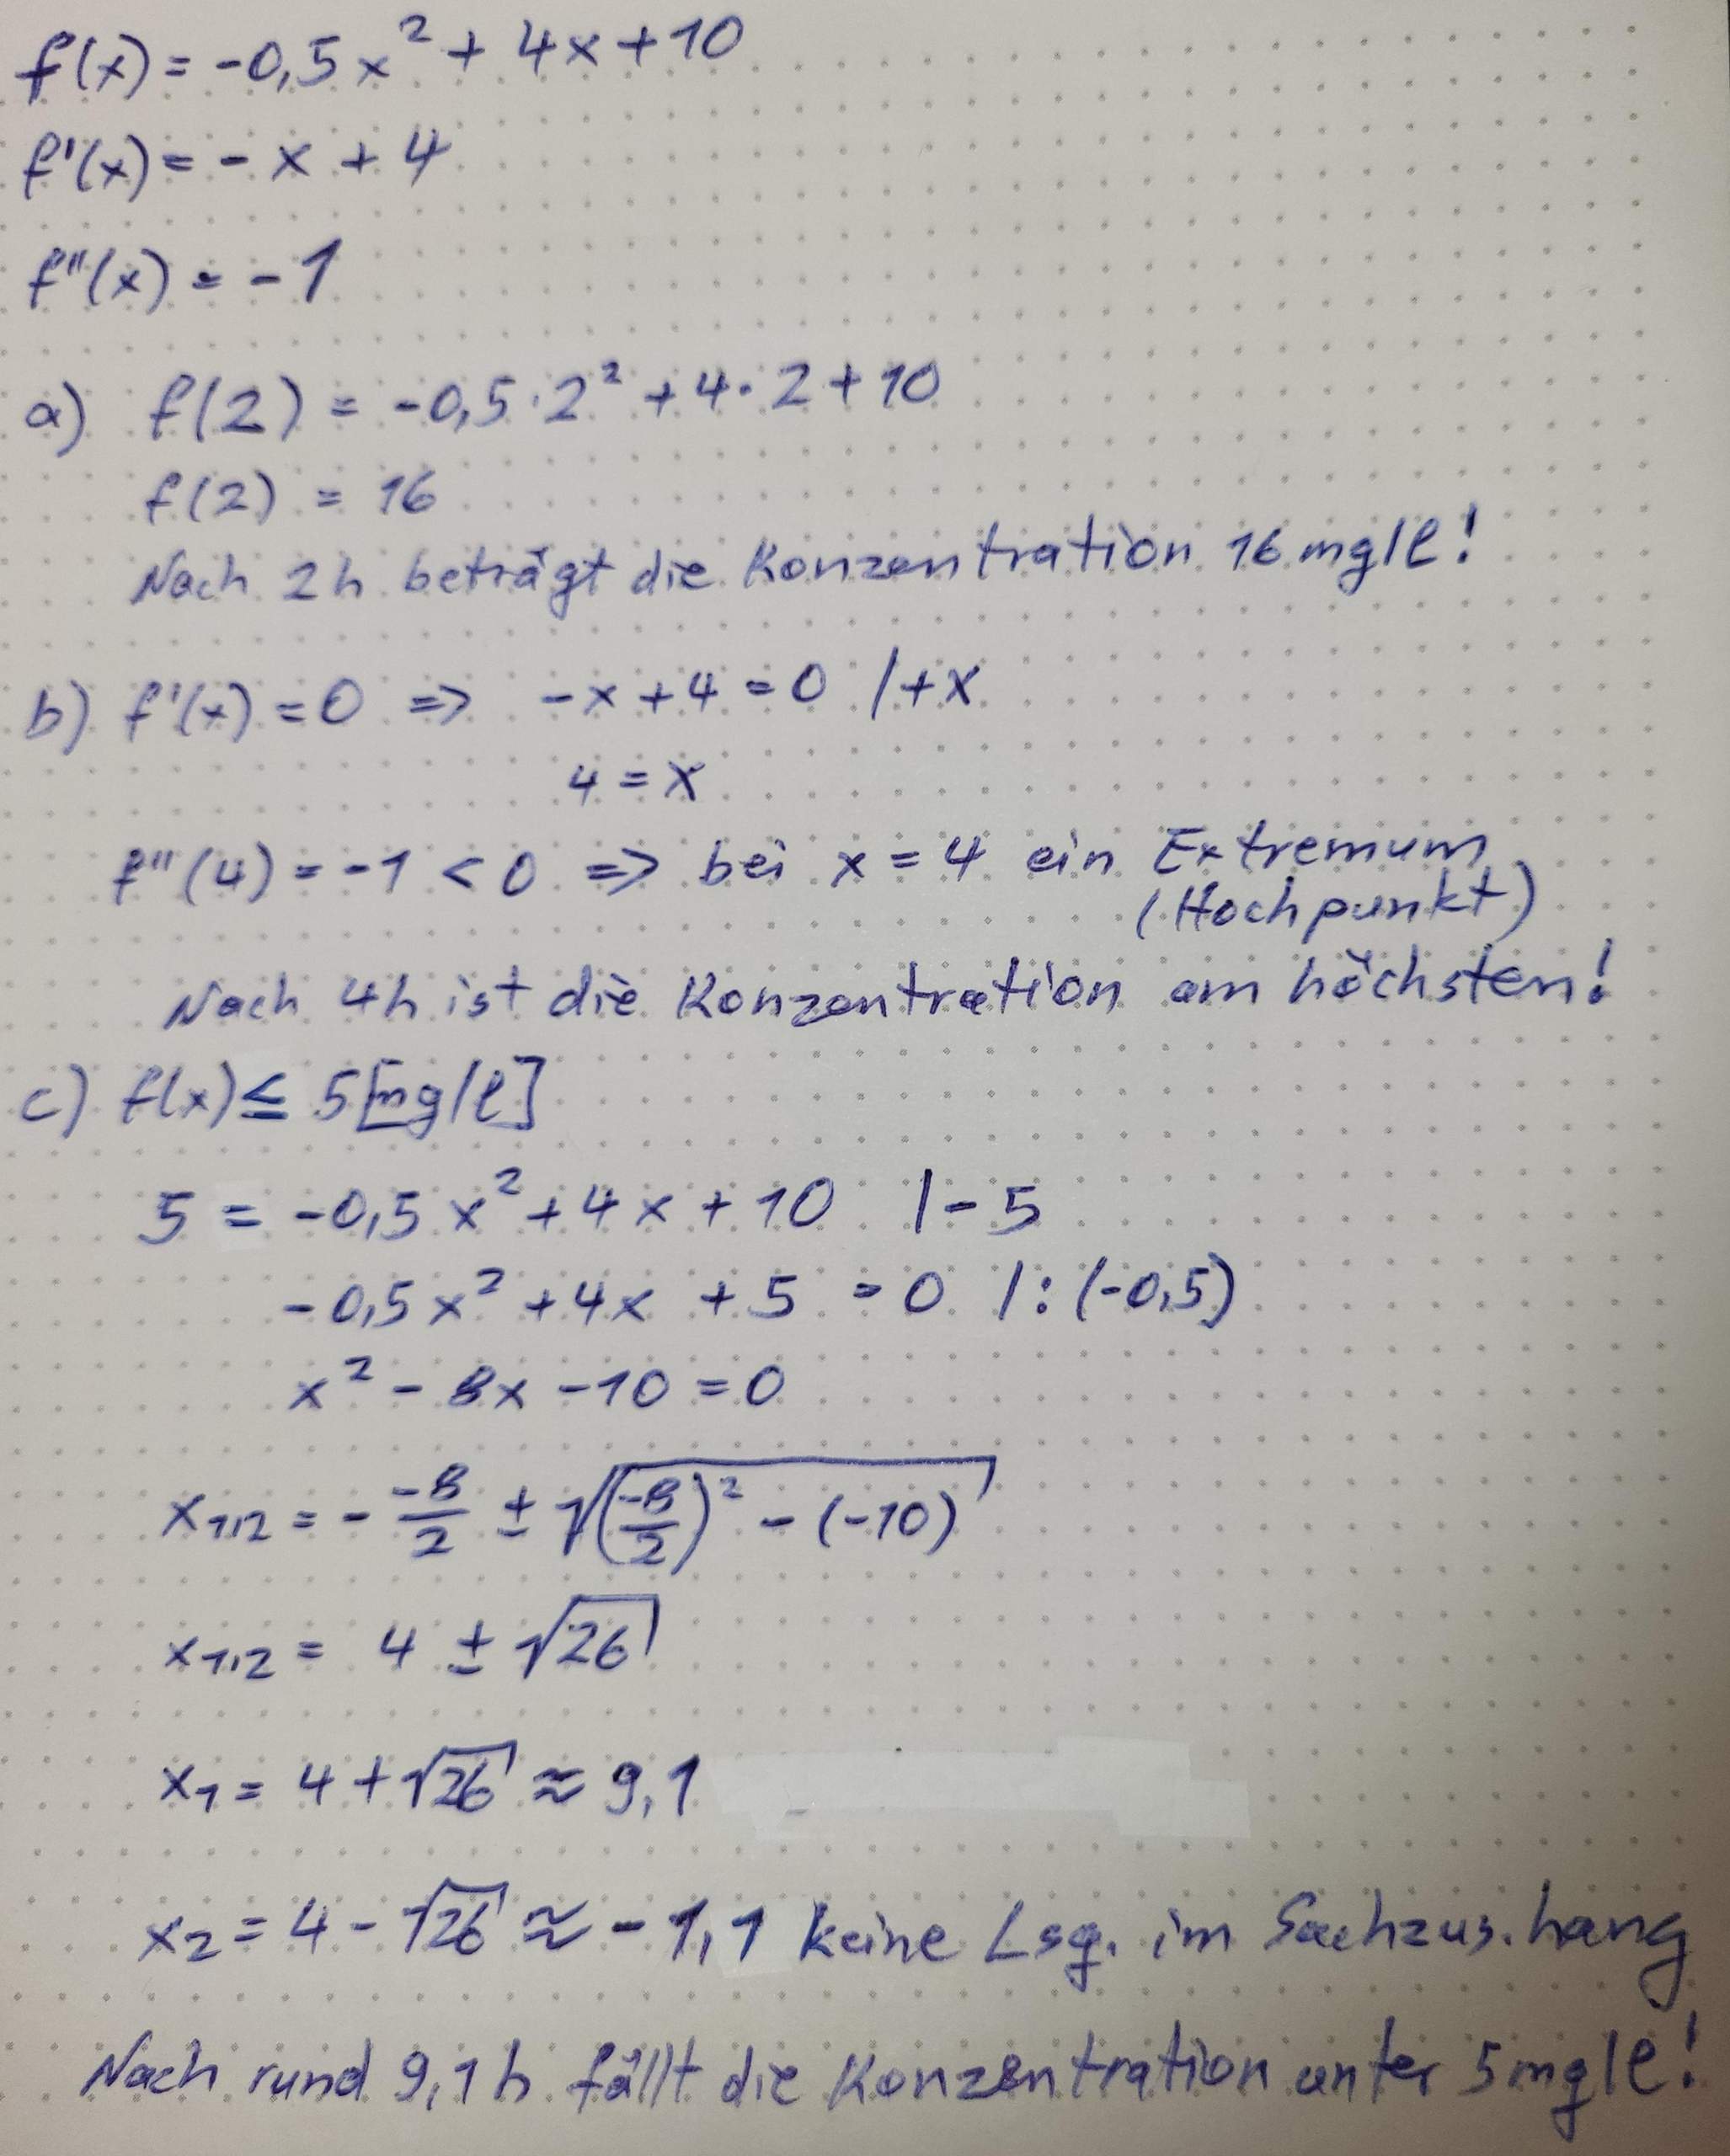 f(x) = -0,5x² + 4x + 10
f'(x) = -x + 4
f''(x) = -1
a) f(2) = -0,5·2² + 4·2 + 10
f(2) = 16
Nach 2h beträgt die Konzentration 16 mg/l!
b) f'(x) = 0 => -x + 4 = 0 |+x
4 = x
f''(4) = -1 < 0 => bei x = 4 ein Extremum
(Hochpunkt)
Nach 4h ist die Konzentration am höchsten!
c) f(x) ≤ 5 [mg/l]
5 = -0,5x² + 4x + 10 |-5
-0,5x² + 4x + 5 = 0 |:(-0,5)
x² - 8x - 10 = 0
x₁,₂ = - -8/2 ± √((-8/2)² - (-10))
x₁,₂ = 4 ± √26
x₁ = 4 + √26 ≈ 9,1
x₂ = 4 - √26 ≈ -1,1 keine Lsg. im Sachzus.hang
Nach rund 9,1h fällt die Konzentration unter 5mg/l!